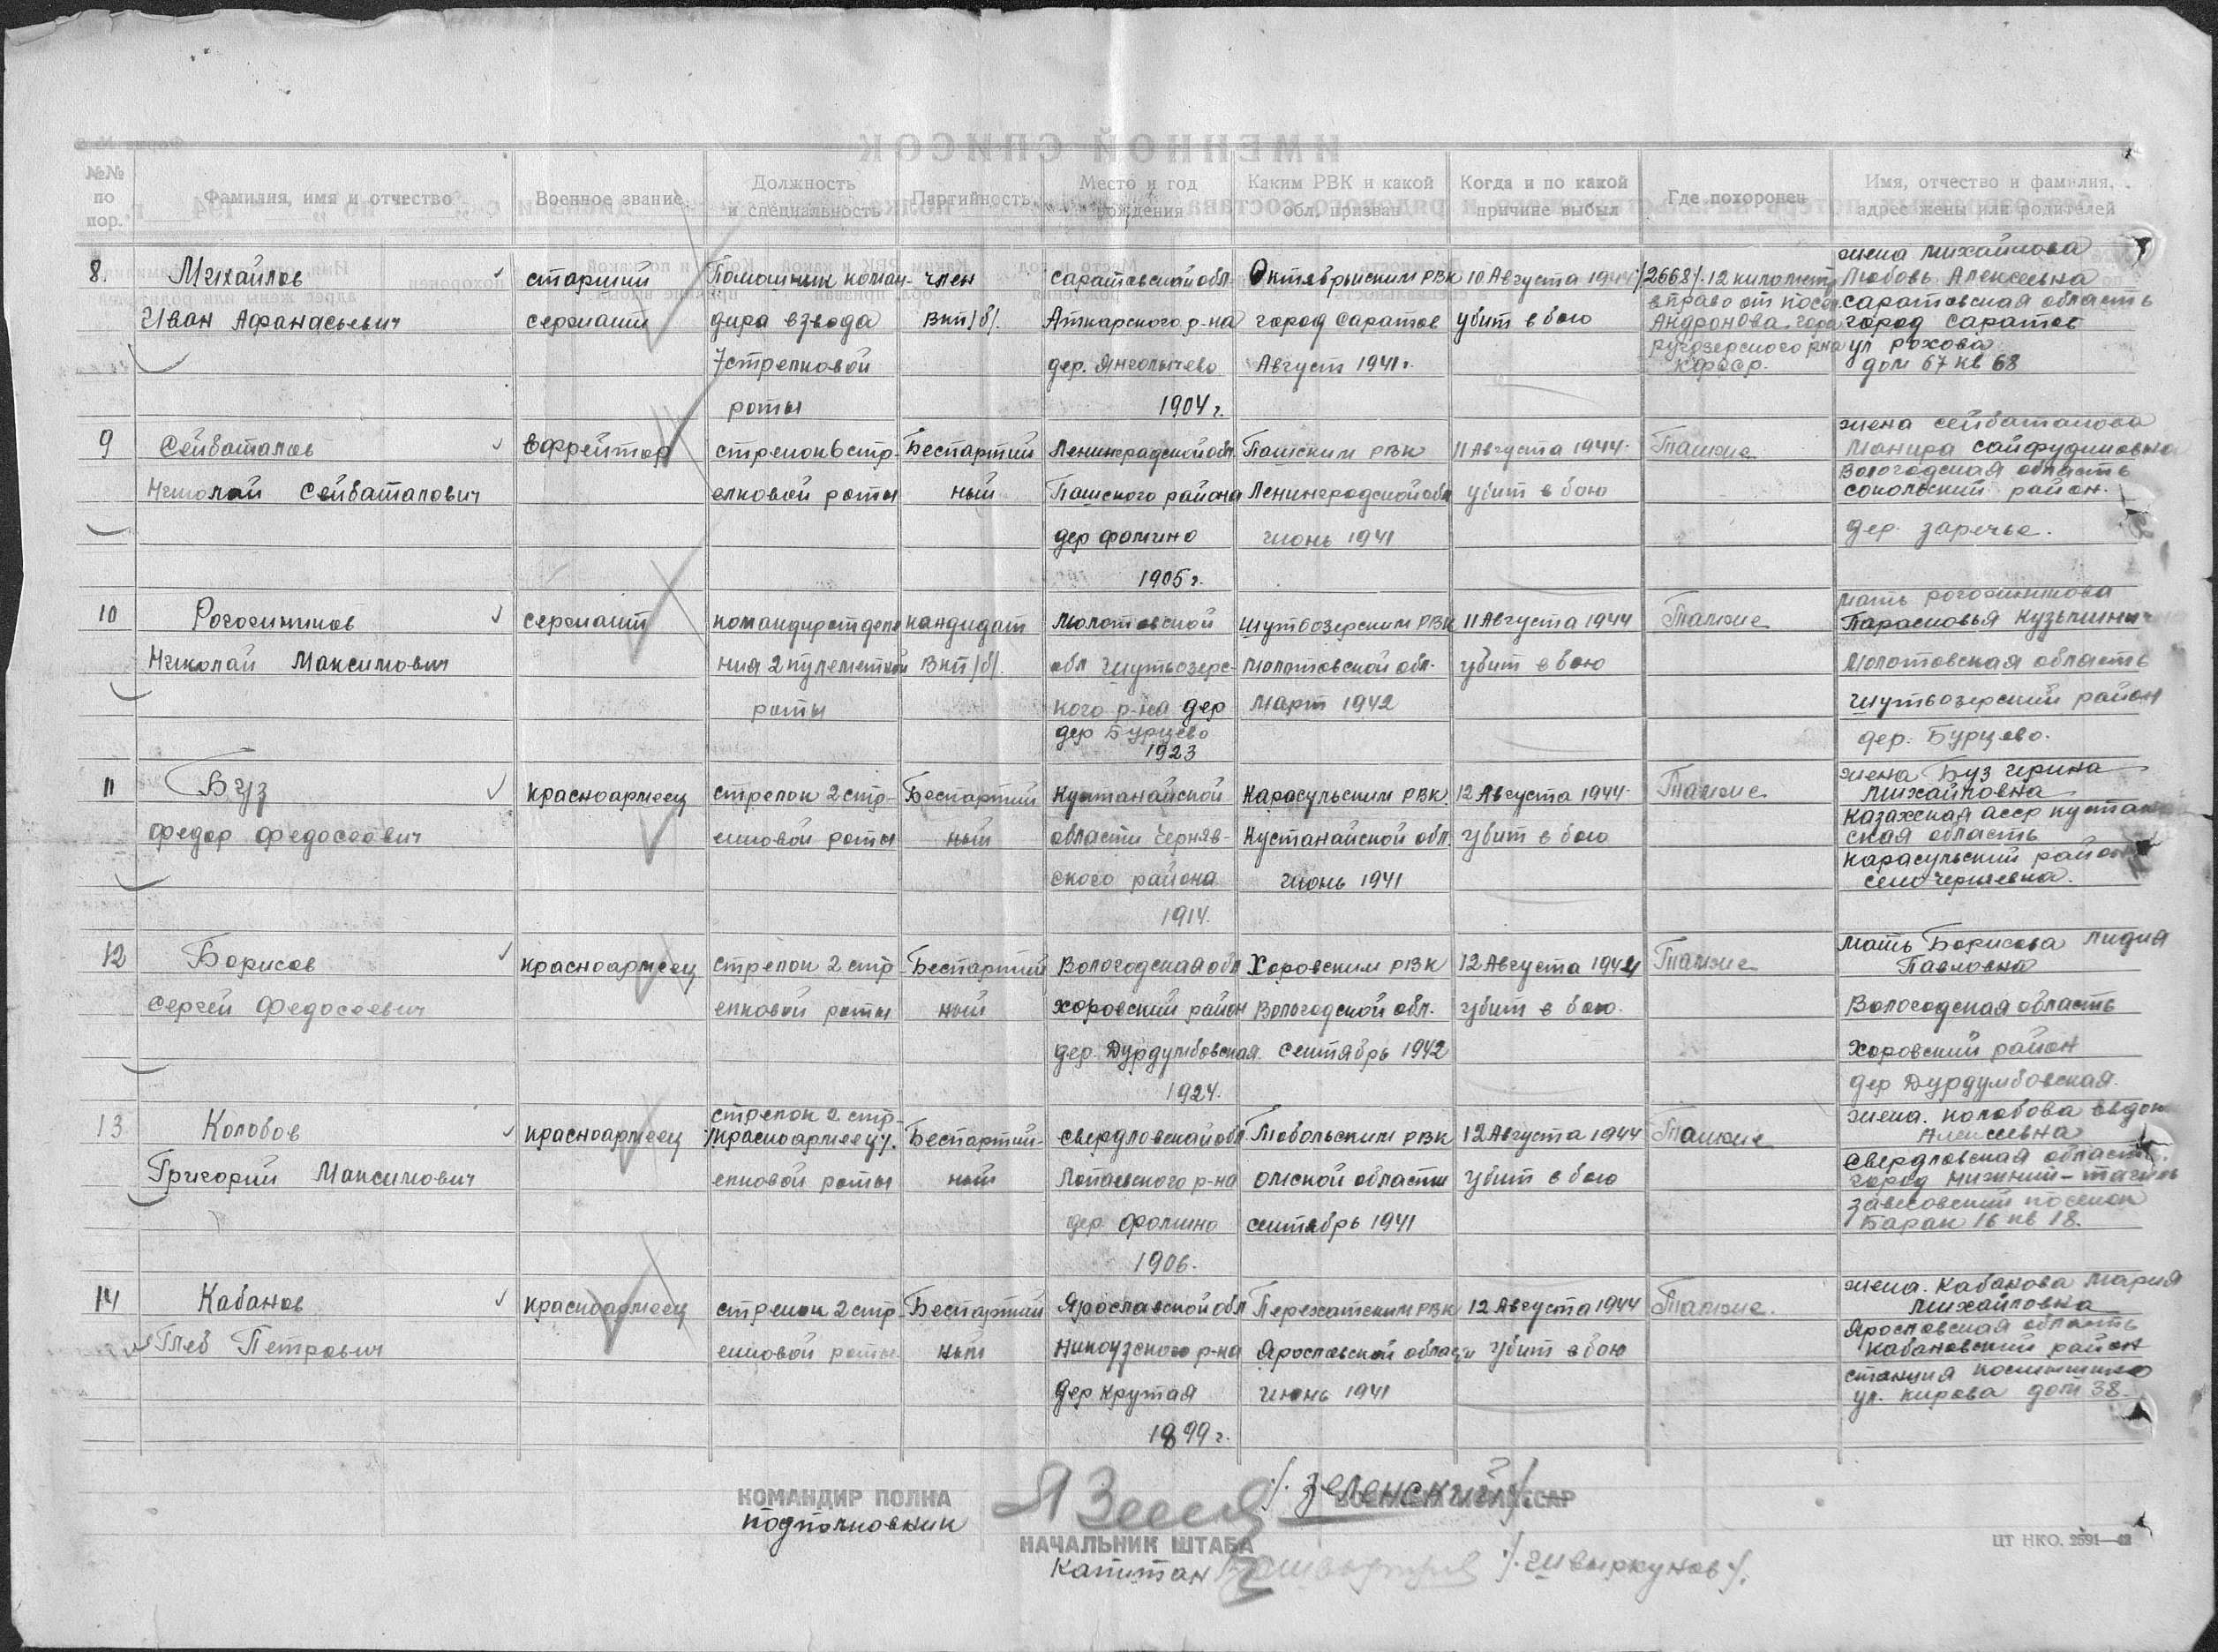 №№ по пор. Фамилия, имя и отчество Военное звание Должность и специальность Партийность Место и год рождения Каким РВК и какой обл. призван Когда и по какой причине выбыл Где похоронен Имя, отчество и фамилия, адрес жены или родителей
8. Михайлов старший Помошник коман- член Саратовской обл. Октябрьским РВК 10 Августа 1944 /2668/. 12 километр жена Михайлова Любовь Алексеевна
Иван Афанасьевич сержант дира взвода ВКП/б/. Аткарского р-на город Саратов убит в бою вправо от посел Андронова гора Саратовская область город Саратов
7 стрелковой дер. Янгалычево Август 1941 г. ругозерского р-на КФССР. ул Рахова дом 67 кв 68
роты 1904 г.
9 Сейботалов ефрейтор стрелок 6 стр- Беспартий Ленинградской обл. Пашским РВК 11 Августа 1944 Также жена Сейботалова Манира Сайфудиновна
Николай Сейботалович елковой роты ный Пашского района Ленинградской обл убит в бою Вологодская область Сокольский район.
дер Фомино июнь 1941 дер. Заречье.
1905 г.
10 Рогожников сержант командир отделе кандидат Молотовской Шутьозерским РВК 11 Августа 1944 Также Мать Рогожникова Парасковья Кузьминич
Николай Максимович ния 2 пулеметной ВКП/б/. обл Шутьозерс- Молотовской обл. убит в бою Молотовская область
роты кого р-на дер Март 1942 Шутьозерский район
дер Бурцево дер. Бурцево.
1923
11 Буз красноармеец стрелок 2 стр- Беспартий Кустанайской Карасульским РВК. 12 Августа 1944 Также жена Буз Ирина Михайловна
Федор Федосеович елковой роты ный области Черняв- Кустанайской обл. убит в бою Казахская АССР Кустанай ская область
ского района Июнь 1941 Карасульский район село
1914.
12 Борисов красноармеец стрелок 2 стр Беспартий Вологодская обл Харовским РВК 12 Августа 1944 Также Мать Борисова Лидия Павловна
Сергей Федосеевич елковой роты ный Хоровский район Вологодской обл. убит в бою. Вологодская область
дер. Дурдумбовская. Сентябрь 1942 Хоровский район
1924. дер Дурдумбовская.
13 Колобов красноармеец стрелок 2 стр- /красноармеец/. Беспартий- Свердловской обл Тобольским РВК 12 Августа 1944 Также жена. Колобова Евдок Алексеевна
Григорий Максимович елковой роты ный Лопаевского р-на Омской области убит в бою Свердловская область. город Нижний-Тагиль
дер Фомино сентябрь 1941 поселок Барак 16 кв 18.
1906.
14 Кабанов красноармеец стрелок 2 стр Беспартий Ярославской обл 12 Августа 1944 Также. жена. Кабанова Мария Михайловна
Глеб Петрович елковой роты ный р-на Ярославской области убит в бою Ярославская область Кабановский район
дер Крутая Июнь 1941 станция
1899 г. ул. Кирова дом 38.
КОМАНДИР ПОЛКА /. Зеленский /.
подполковник
НАЧАЛЬНИК ШТАБА
Капитан /. Шивыркунов /.
ЦТ НКО. 2591—42